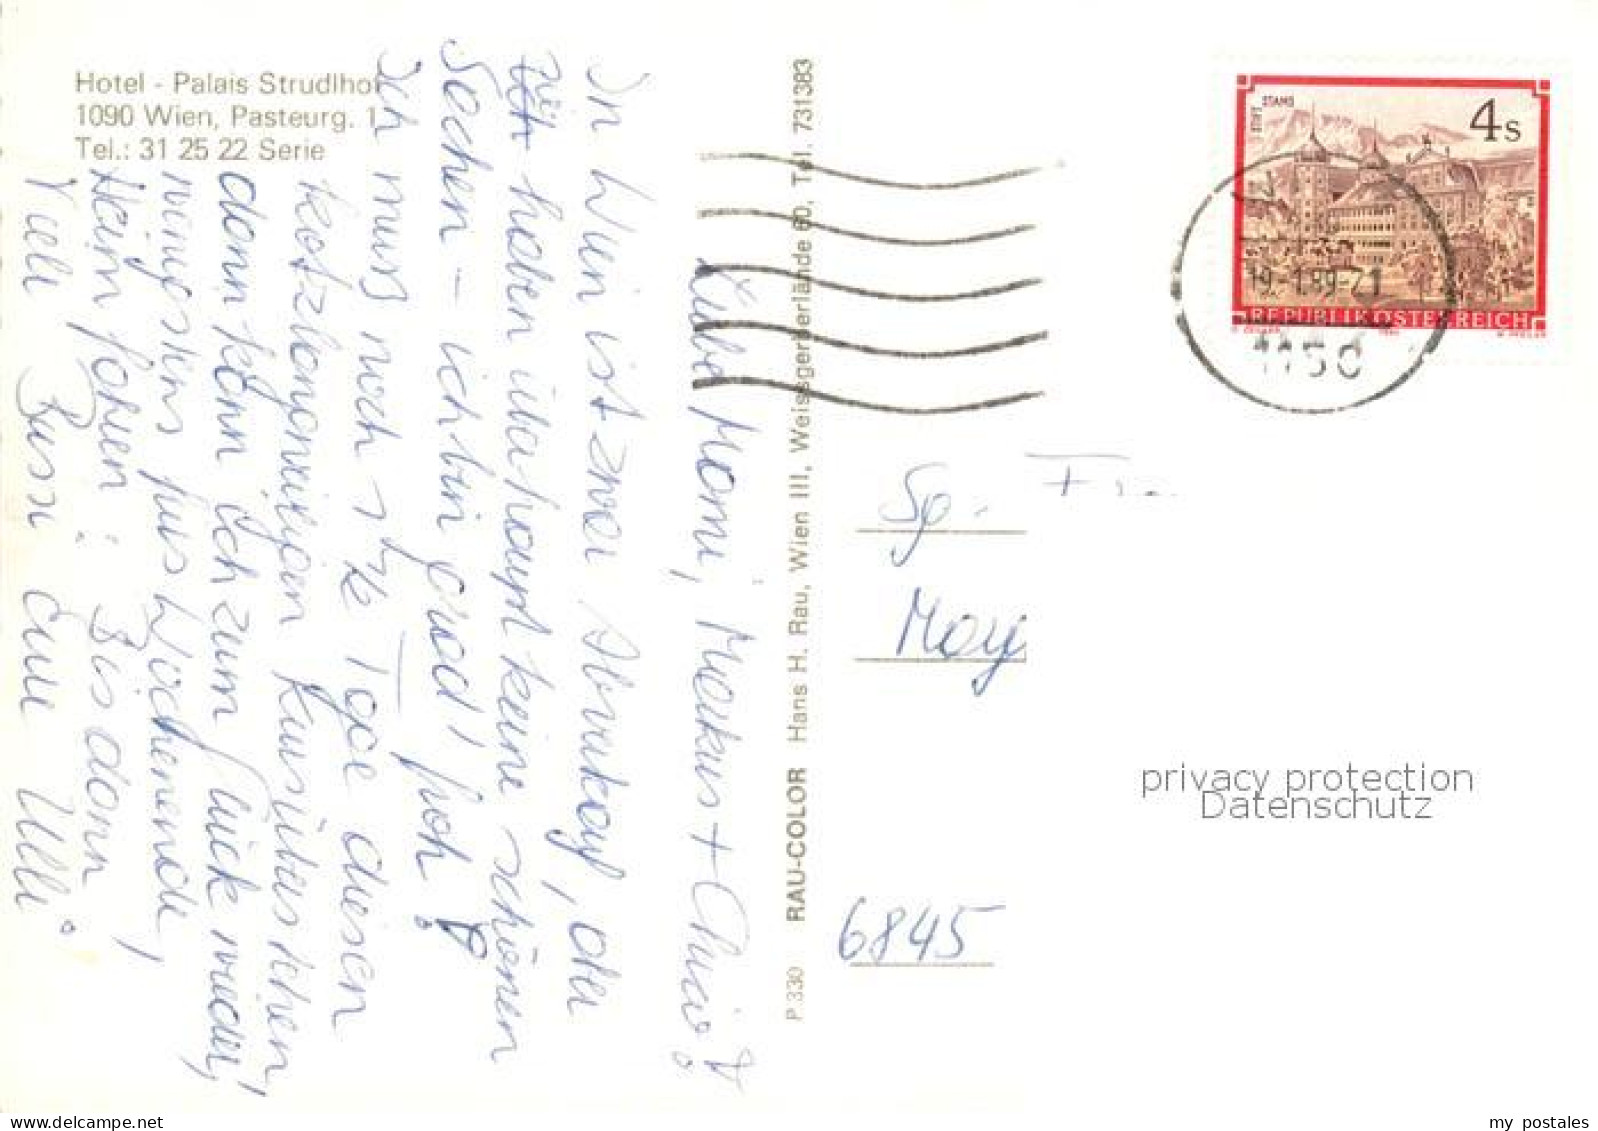 Hotel - Palais Strudlhof
1090 Wien, Pasteurg. 1
Tel.: 31 25 22 Serie
Liebe Momi, Markus + Chris!
In Wien ist zwar Abverkauf, aber
wir haben überhaupt keine schönen
Sachen - ich bin grad' froh!
Ich muss noch 1 1/2 Tage diesen
kotzlangweiligen Kurs überstehen,
dann kann ich zum Glück wieder,
wenigstens fürs Wochenende,
Heim fahren! Bis dann
Viele Bussi Eure Ulli
P 330 RAU-COLOR Hans H. Rau, Wien III, Weissgerberlände 60, Tel. 731383
STIFT STAMS
4 S
REPUBLIK ÖSTERREICH
19.-1.89-21
1150
Sp.
May
6845
privacy protection
Datenschutz
my postales